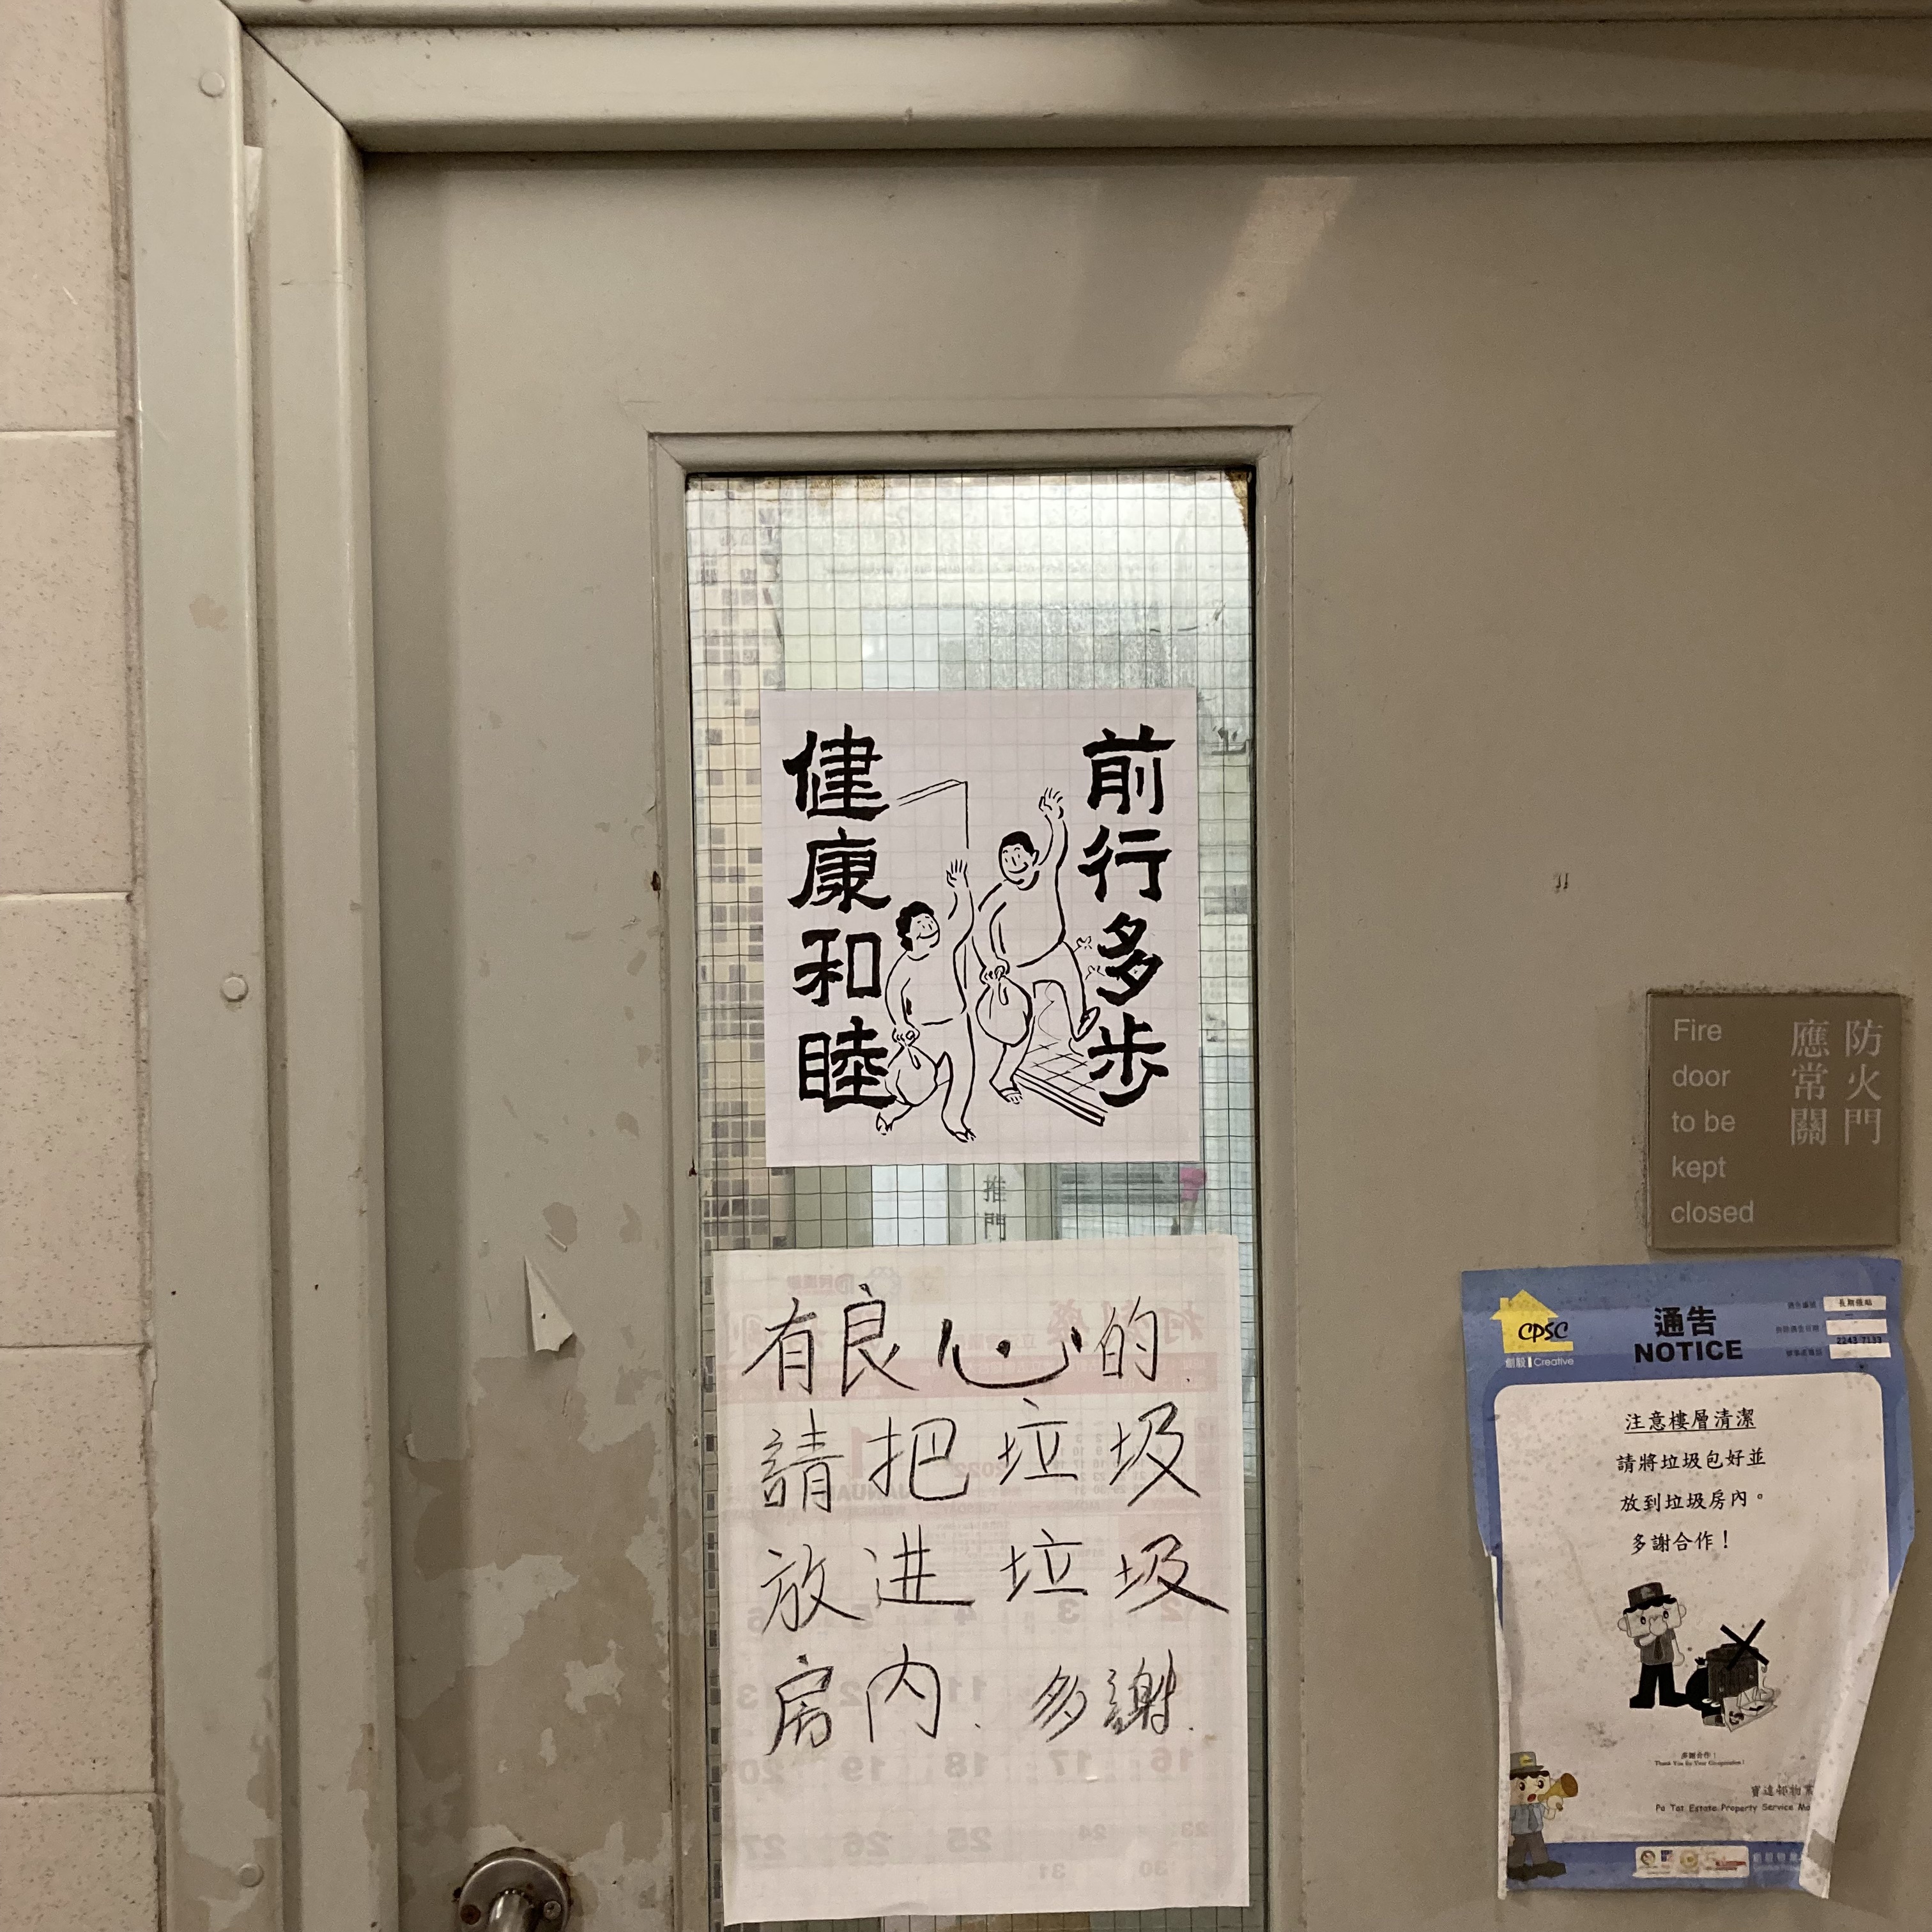 前行多步
健康和睦
推門
有良心的.
請把垃圾
放进垃圾
房内. 多謝.
Fire
door
to be
kept
closed
防火門
應常關
CPSC
創毅 Creative
通告
NOTICE
長期張貼
2243 7133
注意樓層清潔
請將垃圾包好並
放到垃圾房內。
多謝合作！
多謝合作！
Thank You for Your Co-operation!
寶達邨物業
Po Tat Estate Property Service